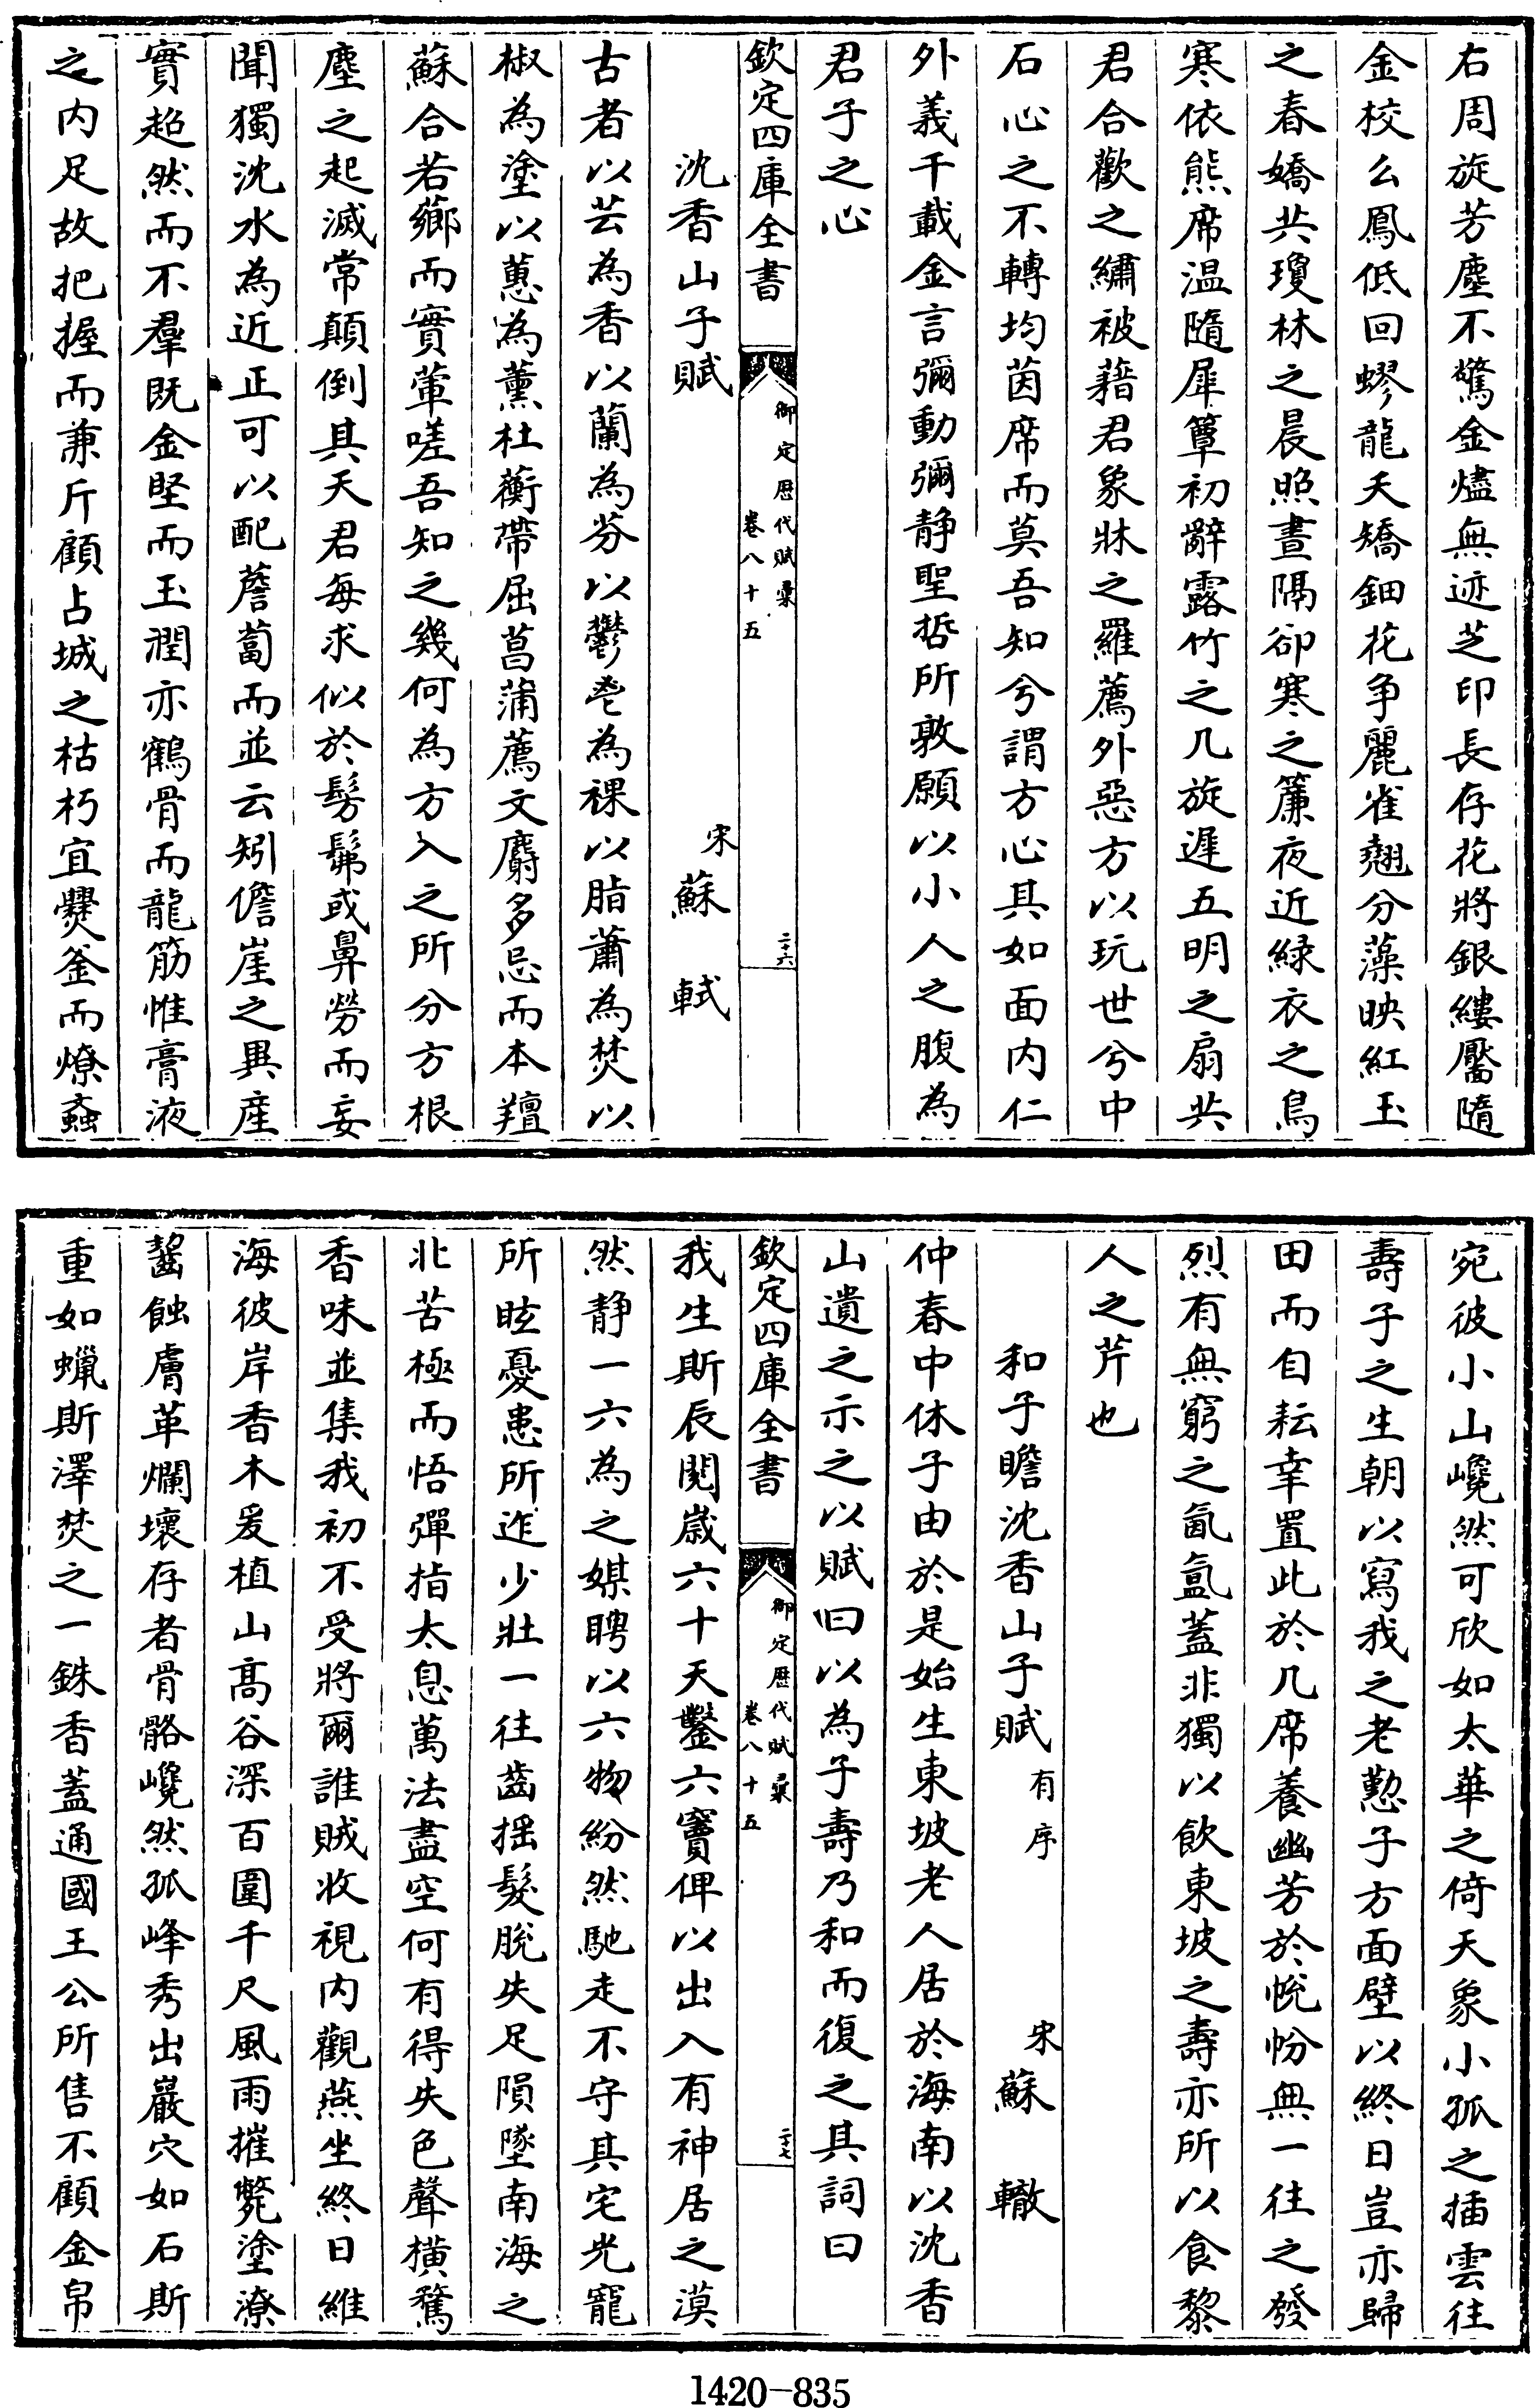 右周旋芳塵不驚金燼無迹芝印長存花將銀縷靨隨
金校么鳳低回蟉龍夭矯鈿花争麗雀翹分藻映紅玉
之春嬌共瓊林之晨照晝隔卻寒之簾夜近緑衣之鳥
寒依熊席温隨犀簟初辭露竹之几旋遲五明之扇共
君合歡之繡被藉君象牀之羅薦外惡方以玩世兮中
石心之不轉均茵席而莫吾知兮謂方心其如面内仁
外義千載金言彌動彌静聖哲所敦願以小人之腹為
君子之心
欽定四庫全書
御定歷代賦彙
卷八十五
二十六
沈香山子賦
宋蘇軾
古者以芸為香以蘭為芬以鬱鬯為祼以脂蕭為焚以
椒為塗以蕙為薰杜蘅帶屈菖蒲薦文麝多忌而本羶
蘇合若薌而實葷嗟吾知之幾何為方入之所分方根
塵之起滅常顛倒其天君每求似於髣髴或鼻勞而妄
聞獨沈水為近正可以配薝蔔而並云矧儋崖之異産
實超然而不羣既金堅而玉潤亦鶴骨而龍筋惟膏液
之内足故把握而兼斤顧占城之枯朽宜爨釜而燎蚉
宛彼小山巉然可欣如太華之倚天象小孤之插雲往
壽子之生朝以寫我之老懃子方面壁以終日豈亦歸
田而自耘幸置此於几席養幽芳於帨帉無一往之發
烈有無窮之氤氲蓋非獨以飲東坡之壽亦所以食黎
人之芹也
和子瞻沈香山子賦有序
宋蘇轍
仲春中休子由於是始生東坡老人居於海南以沈香
山遺之示之以賦曰以為子壽乃和而復之其詞曰
欽定四庫全書
御定歷代賦彙
卷八十五
二十七
我生斯辰閱歳六十天鑿六竇俾以出入有神居之漠
然静一六為之媒聘以六物紛然馳走不守其宅光寵
所眩憂患所迮少壯一往齒揺髮脫失足隕墜南海之
北苦極而悟彈指太息萬法盡空何有得失色聲横騖
香味並集我初不受將爾誰賊收視内觀燕坐終日維
海彼岸香木爰植山髙谷深百圍千尺風雨摧斃塗潦
齧蝕膚革爛壞存者骨骼巉然孤峰秀出巖穴如石斯
重如蠟斯澤焚之一銖香蓋通國王公所售不顧金帛
1420-835